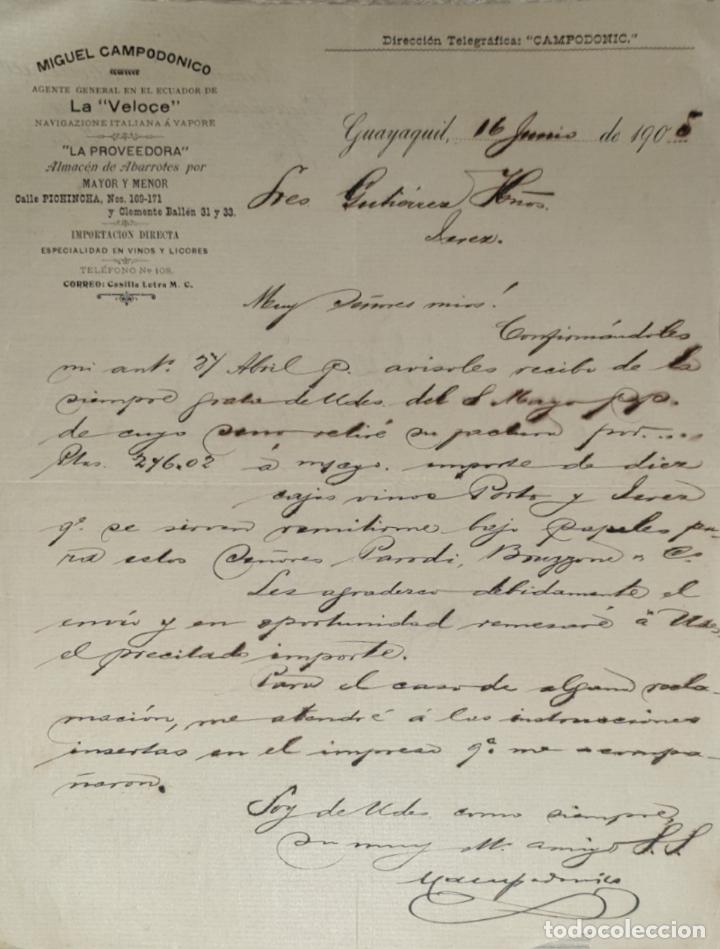 Dirección Telegráfica: "CAMPODONIC."
MIGUEL CAMPODONICO
AGENTE GENERAL EN EL ECUADOR DE
La "Veloce"
NAVIGAZIONE ITALIANA Á VAPORE
"LA PROVEEDORA"
Almacén de Abarrotes por
MAYOR Y MENOR
Calle PICHINCHA, Nos. 169-171
y Clemente Ballén 31 y 33.
IMPORTACION DIRECTA
ESPECIALIDAD EN VINOS Y LICORES
TELÉFONO Nº 108.
CORREO: Casilla Letra M. C.
Guayaquil, 16 Junio de 1905
Sres Gutiérrez Hnos.
Jerez.
Muy Señores mios!
Confirmándoles
mi antr. 27 Abril p. avisoles recibo de la
siempre grata de Udes. del 8 Mayo ppo.
de cuyo seno retiré su factura por
Ptas. 276.02 á m/cgo. importe de diez
cajas vinos Porto y Jerez
qe. se sirven remitirme bajo papeles pa-
ra estos Señores Parodi, Bruzzone & C.
Les agradezco debidamente el
envío y en oportunidad remesaré á Udes
el precitado importe.
Para el caso de alguna recla-
mación, me atendré á las instrucciones
insertas en el impreso qe. me acompa-
ñaron.
Soy de Udes como siempre
su muy Mo. amigo S. S.
MCampodonico
todocoleccion